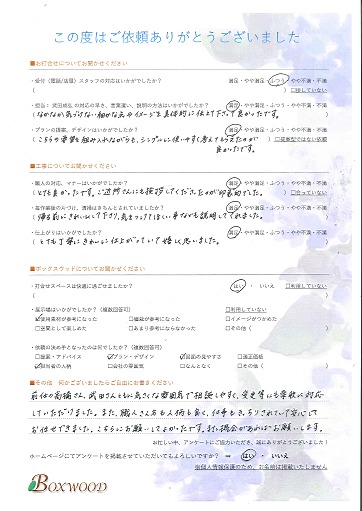 この度はご依頼ありがとうございました
■お打合せについてお聞かせください
・受付(電話/店頭)スタッフの対応はいかがでしたか? 満足・やや満足・ふつう・やや不満・不満
( )□接していない
・担当:武田成弘の対応の早さ、言葉遣い、説明の方法はいかがでしたか? 満足・やや満足・ふつう・やや不満・不満
(なかなか気づけない細かな点やイメージを具体的に伝えて下さって良かったです。)
・プランの提案、デザインはいかがでしたか? 満足・やや満足・ふつう・やや不満・不満
(こちらの希望を組み入れながらも、シンプルに使いやすく考えてもらえたのが )□提案型ではない依頼
良かったです。
■工事についてお聞かせください
・職人の対応、マナーはいかがでしたか? 満足・やや満足・ふつう・やや不満・不満
(とても良かったです。ご近所さんにも挨拶してくださったのが印象的でした。)□会っていない
・各作業後の片づけ、清掃はきちんとされていましたか? 満足・やや満足・ふつう・やや不満・不満
(帰る前にきれいにして下さり、気をつけてほしい事なども説明してくれました。)
・仕上がりはいかがでしたか? 満足・やや満足・ふつう・やや不満・不満
(とても丁寧にきれいに仕上がっていて嬉しく思いました。)
■ボックスウッドについてお聞かせください
・打合せスペースは快適に過ごせましたか? はい ・ いいえ □利用していない
・展示場はいかがでしたか?(複数回答可) □利用していない
☑使用素材が参考になった □植栽が参考になった □イメージがつかめた
□空間として楽しめた □あまり参考にならなかった □その他( )
・依頼の決め手となったのは何でしたか?(複数回答可)
□提案・アドバイス ☑プラン・デザイン ☑図面の見やすさ □適正価格
☑担当者の人柄 □会社の雰囲気 □なんとなく □その他( )
■その他 何かございましたらご自由にお書きください
前任の高橋さん、武田さんともに気さくな雰囲気で相談しやすく、変更等にも早急に対応
していただけました。また、職人さん方も人柄も良く、仕事もきっちりされていて安心して
お任せできました。こちらにお願いしてよかったです。また機会があればお願いします。
お忙しい中、アンケートにご協力いただき、誠にありがとうございました!
ホームページにてアンケートを掲載させていただいてもよろしいですか? ⇒ はい ・ いいえ
※個人情報保護のため、お名前は掲載いたしません
BOXWOOD